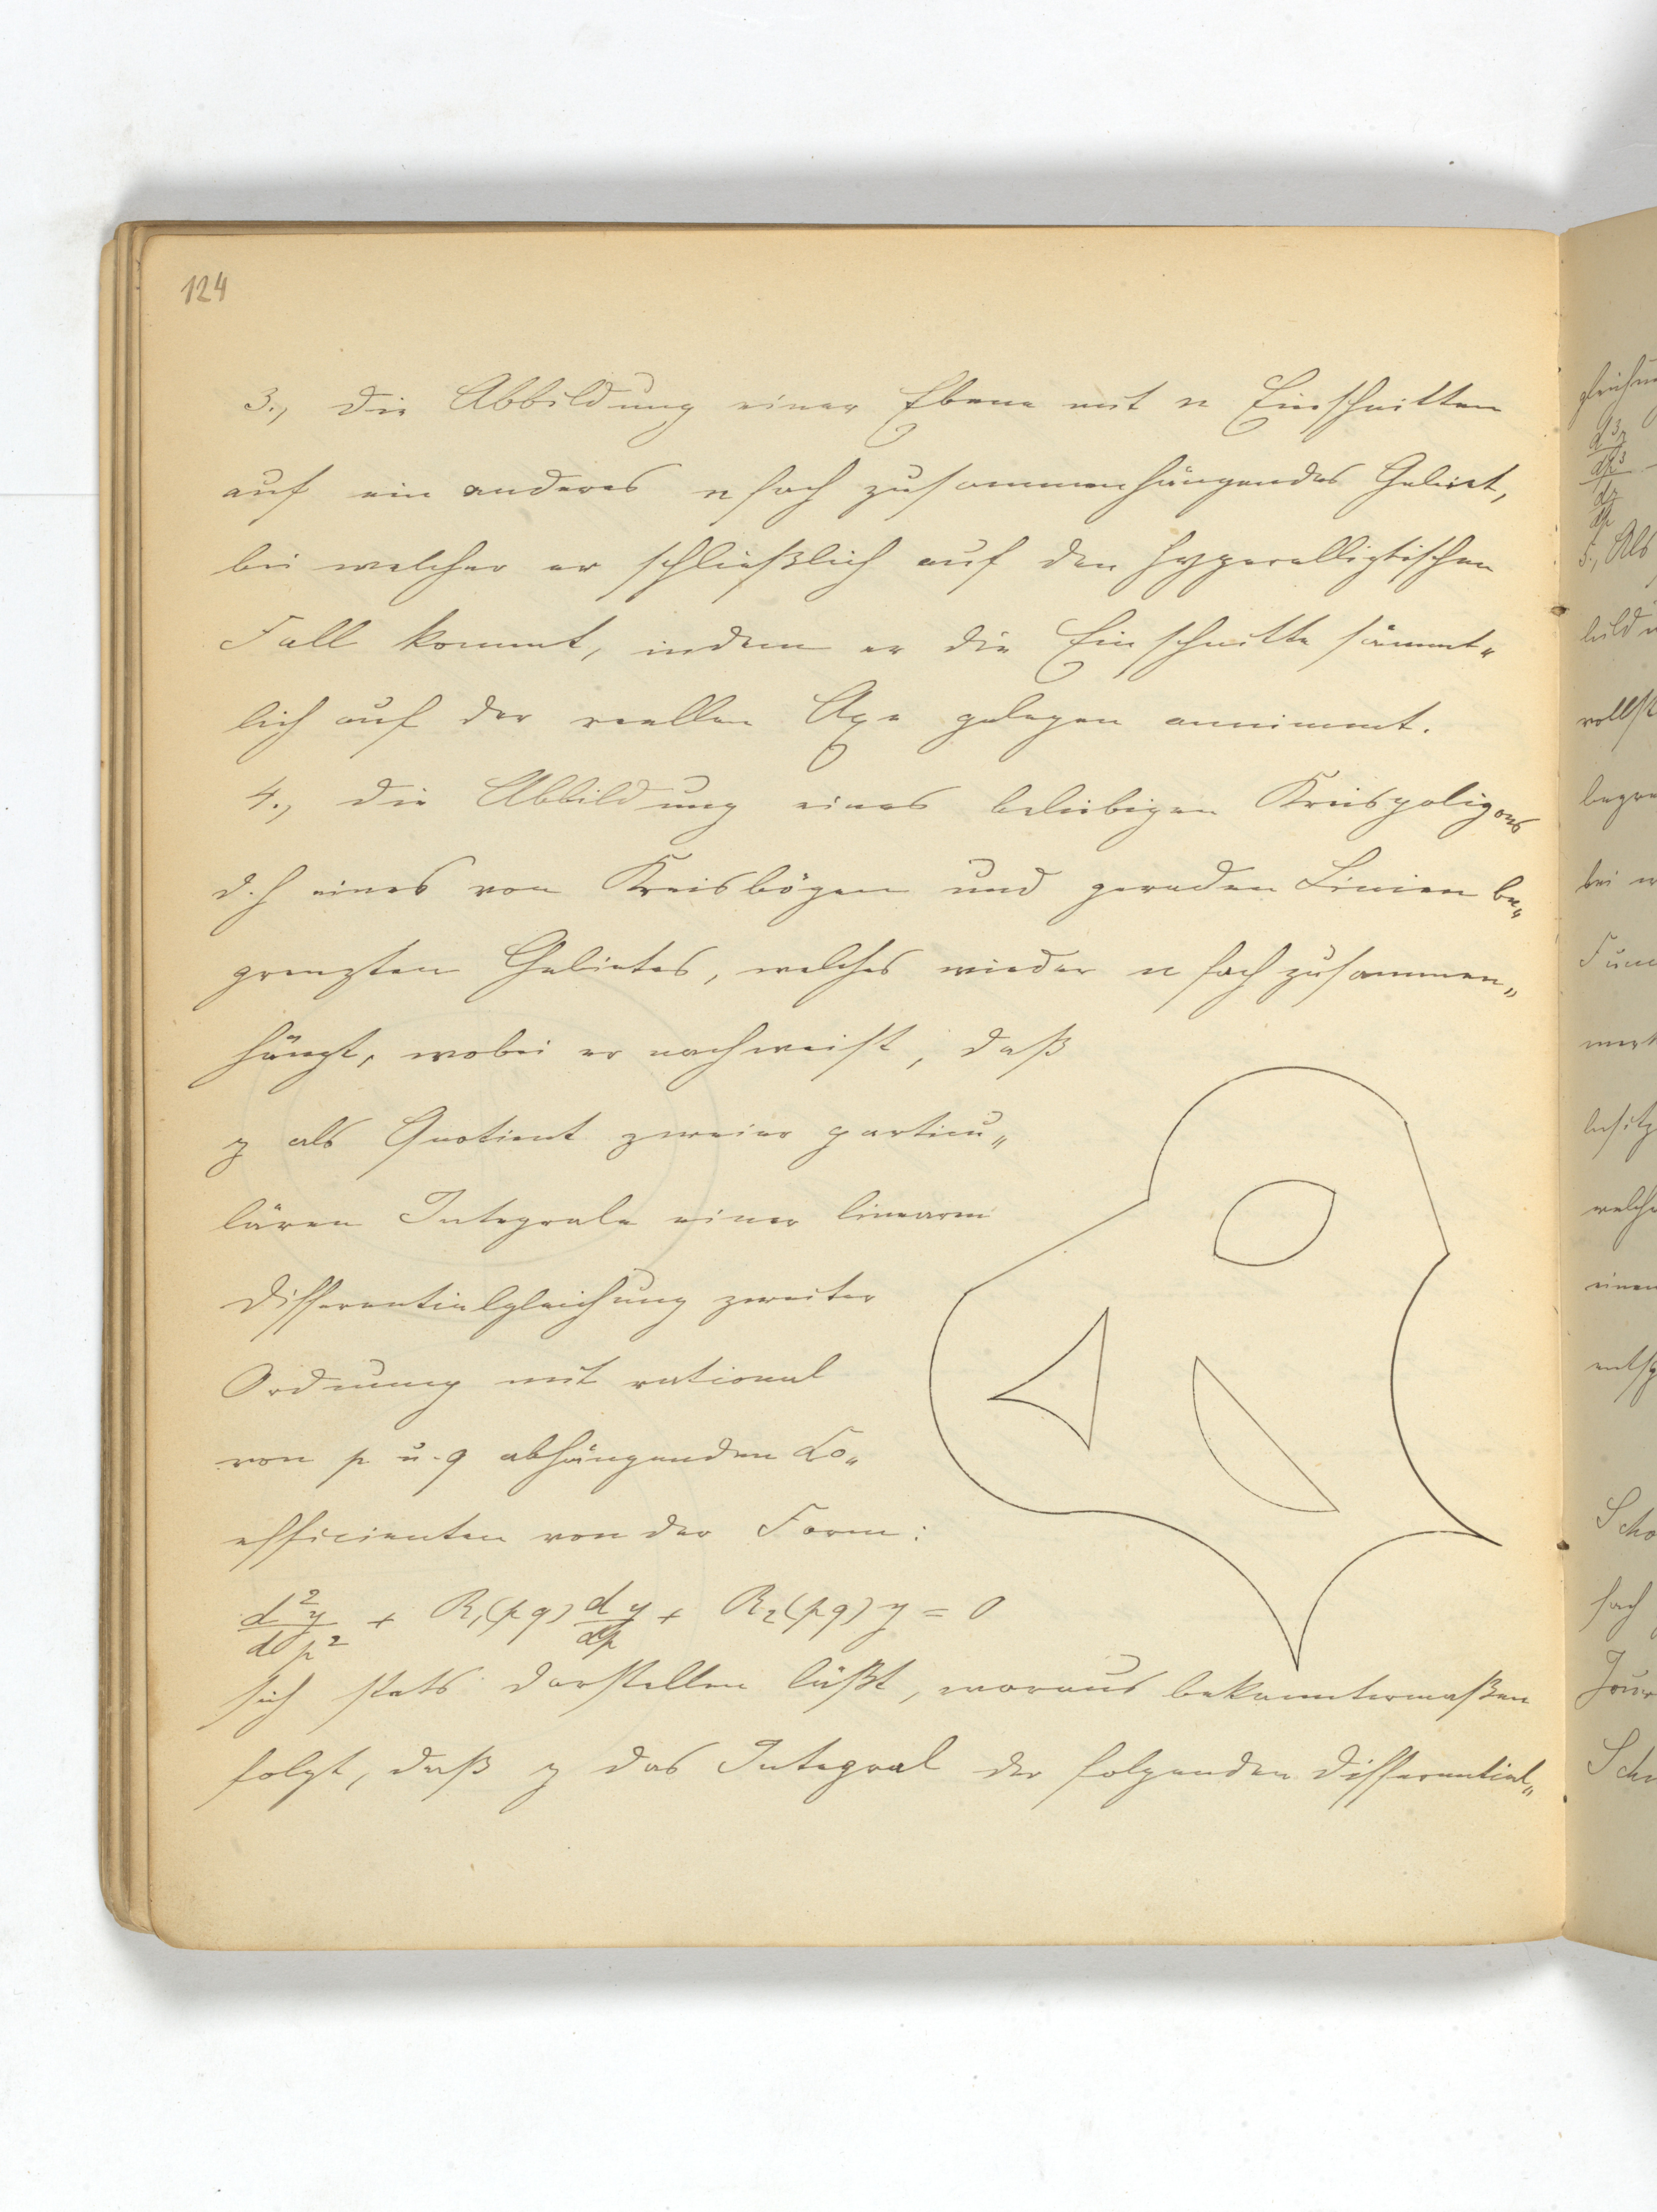 124
3., Die Abbildung einer Ebene mit n Einschnitten
auf ein anderes n fach zusammenhängendes Gebiet,
bei welcher er schließlich auf den hyperelliptischen
Fall kommt, indem er die Einschnitte sämmt„
lich auf der reellen Axe gelegen annimmt.
4., Die Abbildung eines beliebigen Kreispoligons
d.h eines von Kreisbögen und geraden Linien be„
grenzten Gebietes, welches wieder n fach zusammen„
hängt, wobei er nachweist, daß
z als Quotient zweier particu„
lären Integrale einer linearen
Differentialgleichung zweiter
Ordnung mit rational
von p u. q abhängenden Co„
efficienten von der Form:
d²y/dp² + R₁(pq) dy/dp + R₂(pq) y = 0
sich stets darstellen läßt, woraus bekanntermaßen
folgt, daß z das Integral der folgenden Differential„
5., Als
bei